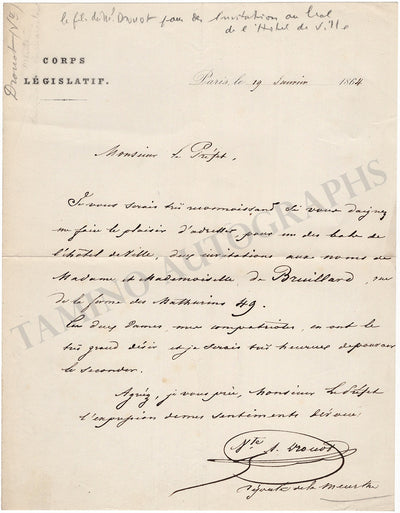 le fils de Mr Drouot pour des Invitations au bal
de l'Hôtel de Ville
Drouot (Vte)
CORPS
LÉGISLATIF.
Paris, le 19 Janvier 1864
Monsieur le Préfet,
Je vous serais très reconnaissant si vous daignez
me faire le plaisir d'adresser pour un des bals de
l'hôtel de Ville des invitations aux noms de
Madame et Mademoiselle de Breillard, rue
de la ferme des Mathurins 49.
Ces deux Dames, mes compatriotes, en ont le
très grand désir et je serais très heureux de pouvoir
le seconder.
Agréez, je vous prie, Monsieur le Préfet
l'expression de mes sentiments dévoués
Vte A. Drouot
député de la Meurthe
TAMINO AUTOGRAPHS